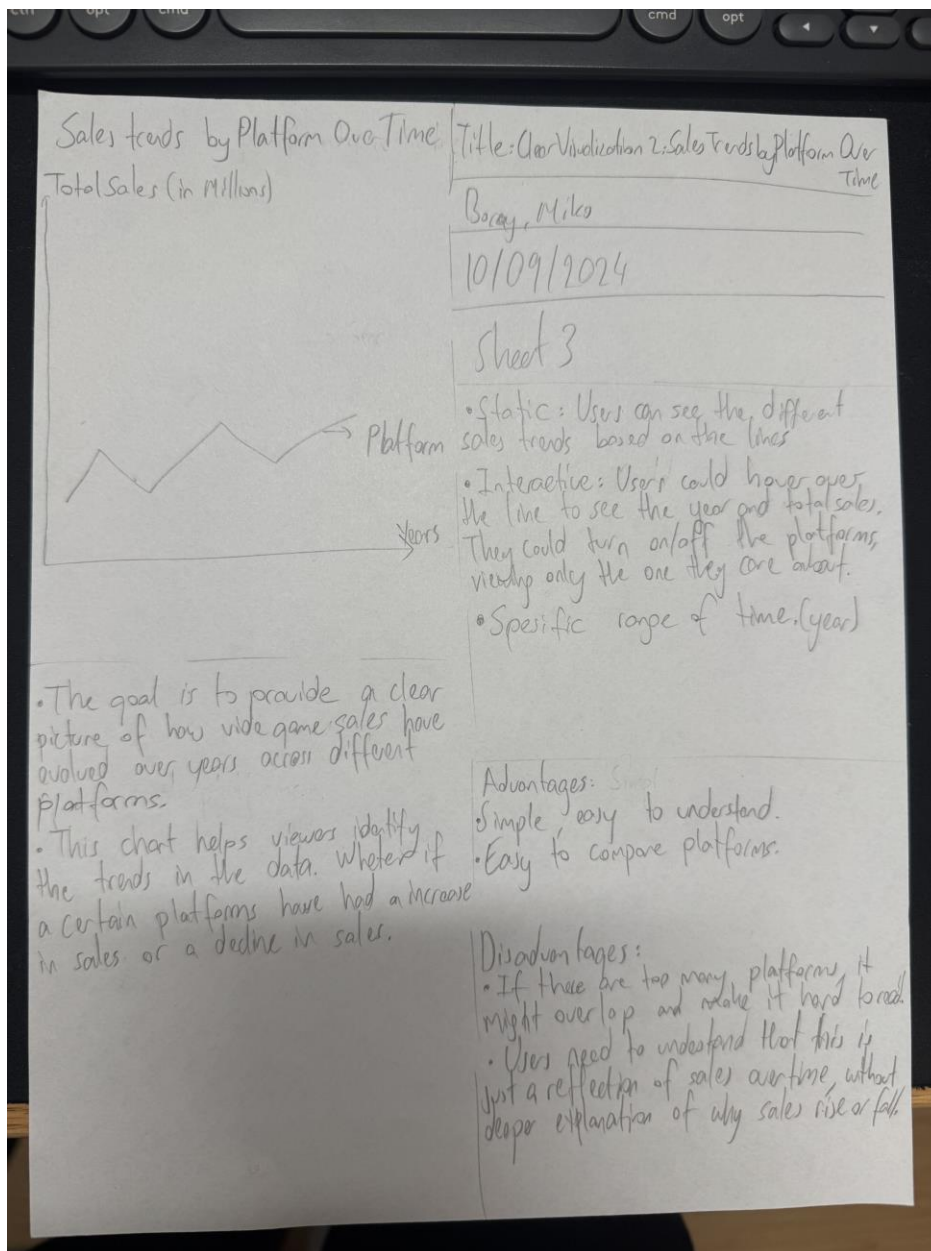 Sales trends by Platform Over Time
Total Sales (in Millions)
Platform
Years
• The goal is to provide a clear
picture of how vide game sales have
evolved over years across different
platforms.
• This chart helps viewers identify
the trends in the data. Wheter if
a certain platforms have had a increase
in sales or a decline in sales.
Title: Clear Visualization 2: Sales Trends by Platform Over
Time
Miko
10/09/2024
Sheet 3
• Static: Users can see the different
sales trends based on the lines
• Interactive: Users could hover over
the line to see the year and total sales.
They could turn on/off the platforms,
viewing only the one they care about.
• Spesific range of time. (year)
Advantages:
Simple, easy to understand.
• Easy to compare platforms.
Disadvantages:
• If there are too many platforms, it
might overlap and make it hard to read.
• Users need to understand that this is
just a reflection of sales over time, without
deeper explanation of why sales rise or fall.
cmd
opt
opt
cmd